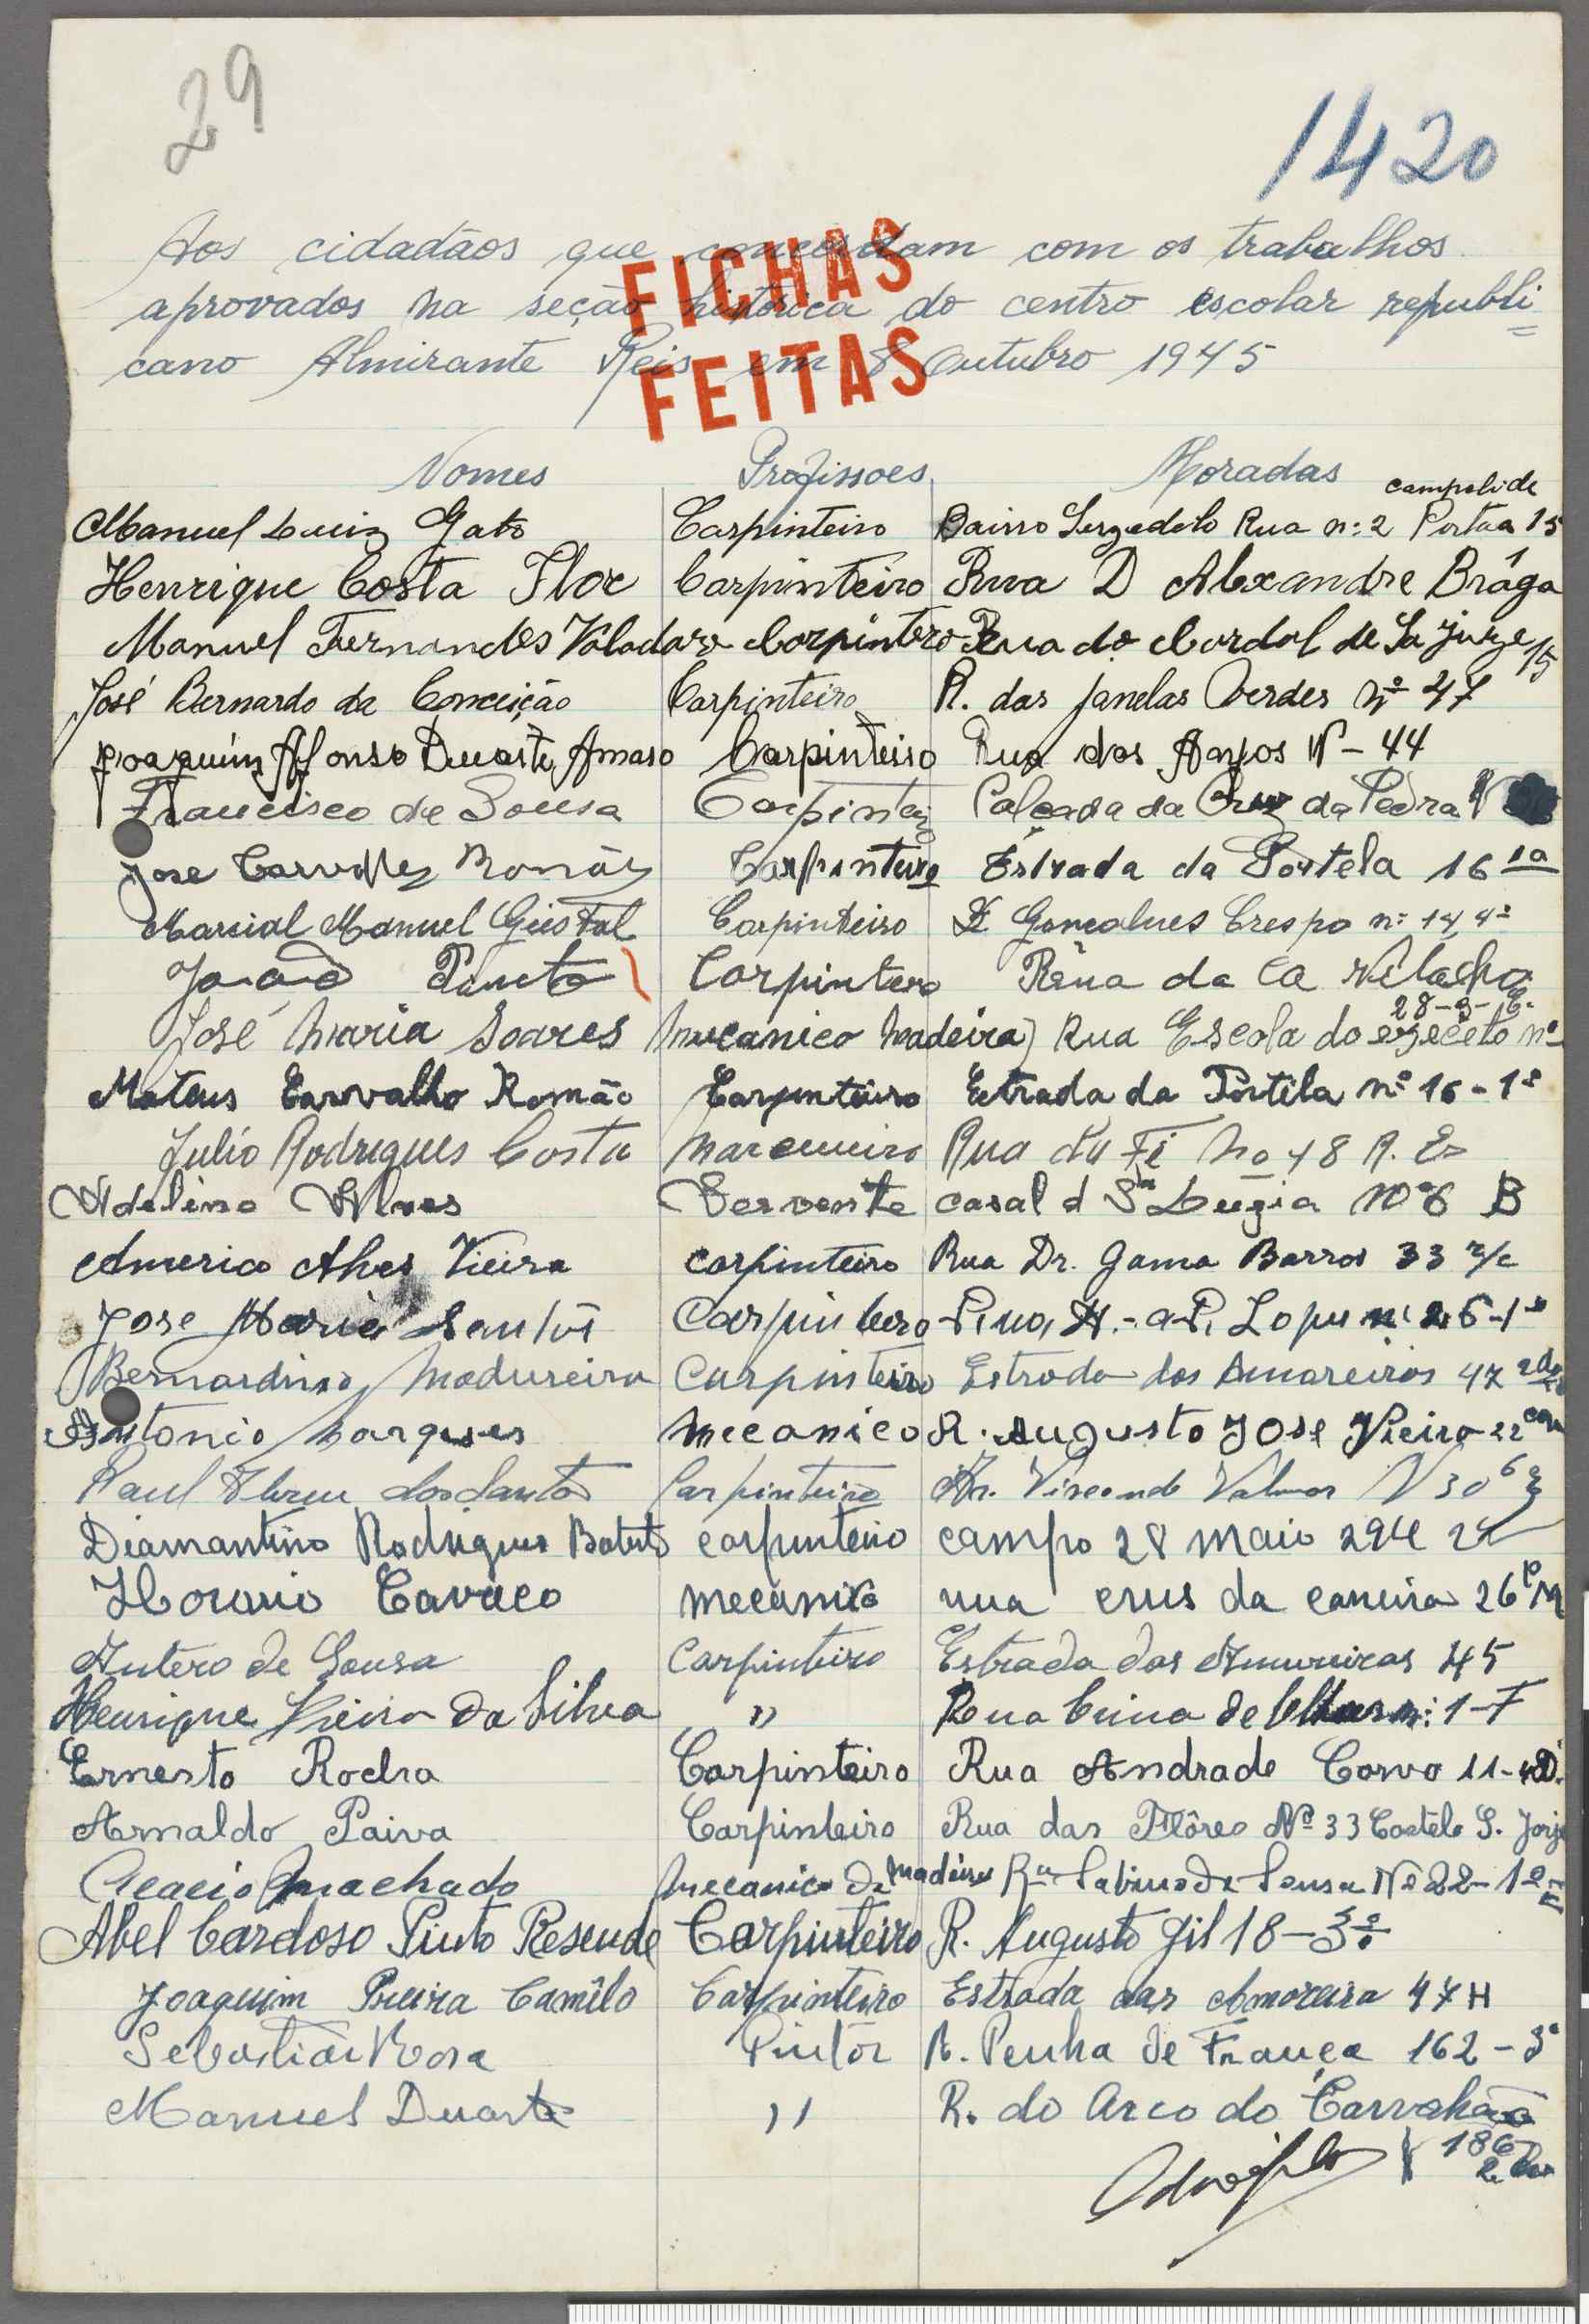 29
1420
Aos cidadãos que concordam com os trabalhos
aprovados na seção histórica do centro escolar republi=
cano Almirante Reis em 8 Outubro 1945
FICHAS
FEITAS
Nomes Profissoes Moradas
campolide
Manuel Luiz Gato Carpinteiro Bairro Serzedelo Rua n: 2 Porta 15
Henrique Costa Flor Carpinteiro Rua D Alexandre Brága
Manuel Fernandes Valadare Carpintero Rua do Cardal de Sa Jurge 15
José Bernardo da Conceição Carpinteiro R. das Janelas Verdes Nº 47
Joaquim Afonso Duarte Amaro Carpinteiro Rua dos Anjos Nº 44
Francisco de Sousa Carpinteiro Calçada da Cruz da Pedra Nº
Jose Carvalho Romão Carpinteiro Estrada da Portela 16 1º
Marcial Manuel Carpinteiro R Goncalues Crespo n: 14, 4º
João Pinto Carpintero Rua da
28-3-E.
José Maria Soares Mecanico Madeira) Rua Escola do execeto nº
Mateus Carvalho Romão Carpinteiro Estrada da Portela nº 16-1º
Julio Rodrigues Costa Marceneiro Rua da Fé No 48 R. E
Adelino Alves Servente casal d Sta Luzia Nº 6 B
Americo Alves Vieira Carpinteiro Rua Dr. Gama Barros 33 r/c
Jose Maria Santos Carpinteiro Rua A.-a-P. Lopes nº 26-1º
Bernardino Madureira Carpinteiro Estrada das Amoreiras 47
Antonio Marques Mecanico R. Augusto Jose Vieira 22
Raul Abreu dos Santos Carpinteiro Av. Visconde Valmor Nº 30
Diamantino Rodrigues Batista carpinteiro campo 28 Maio 294
Horacio Cavaco mecanico rua crus da careira 26
Antero de Sousa Carpinteiro Estrada das Amoreiras 45
Henrique Vieira da Silva " Rua Cima de n: 1-F
Ernesto Rocha Carpinteiro Rua Andrade Corvo 11-4D.
Arnaldo Paiva Carpinteiro Rua das Flôres Nº 33 Castelo S. Jorje
Acacio Machado Mecanico de madeira Rua Sabino de Sousa Nº 22-1º E
Abel Cardoso Pinto Resende Carpinteiro R. Augusto Gil 18-3º
Joaquim Pereira Camilo Carpinteiro Estrada das Amoreira 47 H
Sebastião Rosa Pintor R. Penha de França 162-3º
Manuel Duarte " R. do Arco do Carvalhão
186